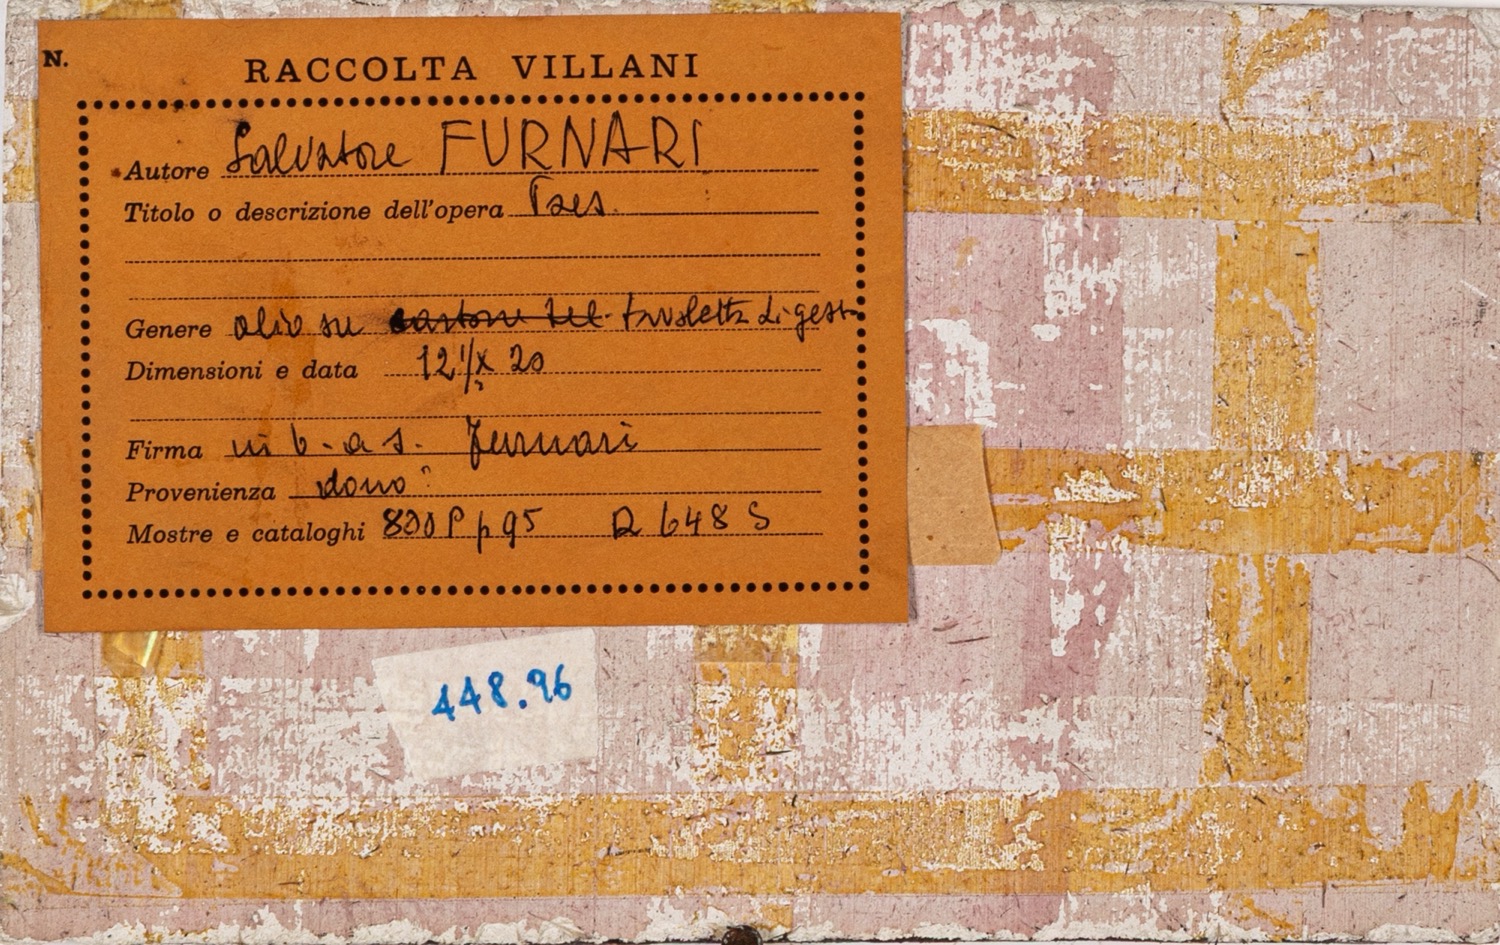 N.
RACCOLTA VILLANI
Autore Salvatore FURNARI
Titolo o descrizione dell'opera Paes.
Genere olio su cartone tel. tavoletta di gesso
Dimensioni e data 12 1/2 x 20
Firma in b. a s. Furnari
Provenienza dono
Mostre e cataloghi p 95 R 648 S
448.96